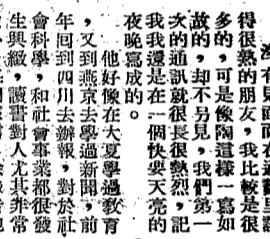 沒有見面而在通
得很熟的朋友,我比較是很
多的,可是像陶這樣一寫如
故的,却不另見,我們第一
次的通訊就很長很熱烈,記
我我還是在一個快要天亮的
夜晚寫成的。
他好像在大夏學過敎育
,又到燕京去學過新聞,前
年囘到四川去辦報,對於社
會科學,和社會事業都很發
生興緻,讀書對人尤其非常